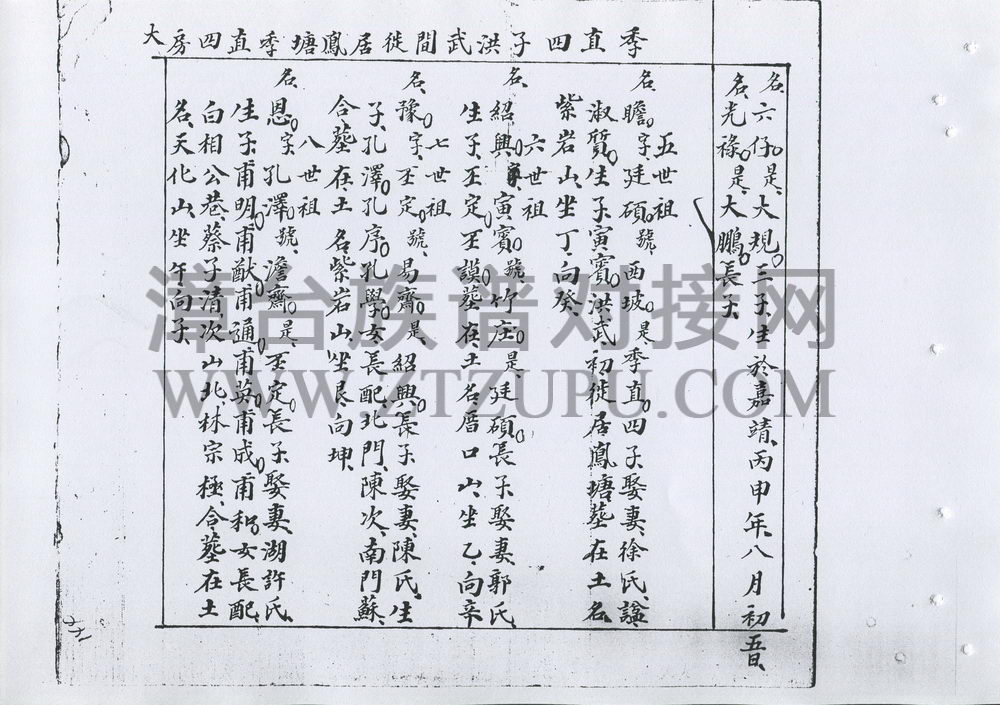 季直四子洪武間徙居鳳塘季直四房大
名六仔是大規三子生於嘉靖丙申年八月初五日
名光祿是大鵬長子
五世祖
名瞻字廷碩號西坡是季直四子娶妻徐氏諡
淑質生子寅賓洪武初徙居鳳塘墓在土名
紫岩山坐丁向癸
六世祖
名紹興字寅賓號竹庄是廷碩長子娶妻郭氏
生子丕定丕謨墓在土名厝口山坐乙向辛
七世祖
名豫字丕定號易齋是紹興長子娶妻陳氏生
子孔澤孔序孔學女長配北門陳次南門蘇
合墓在土名紫岩山坐艮向坤
八世祖
名恩字孔澤號澹齋是丕定長子娶妻湖許氏
生子甫明甫猷甫通甫英甫成甫和女長配
白相公巷蔡子清次山北林宗極合墓在土
名天化山坐午向子
漳台族谱对接网
WWW.ZTZUPU.COM